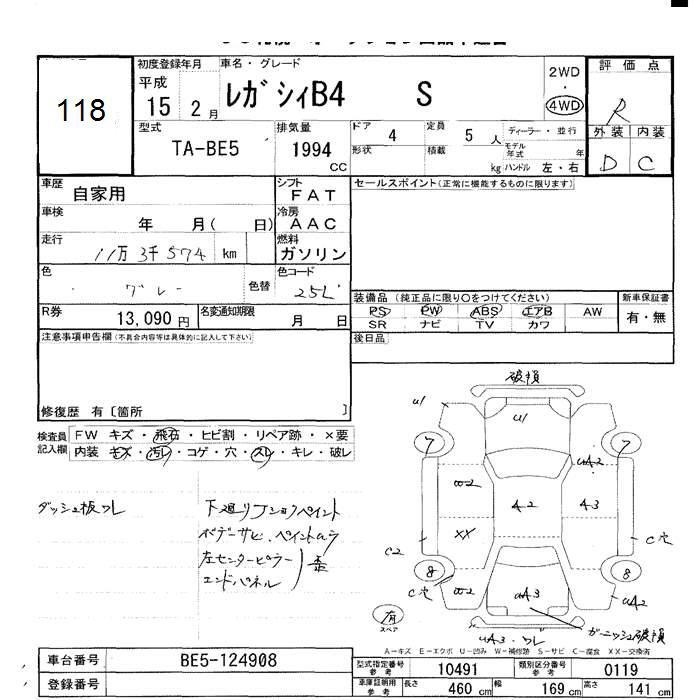 118
初度登録年月
平成
15
2
月
車名・グレード
ﾚｶﾞｼｨB4 S
2WD
・
4WD
評価点
R
外装 内装
D C
型式
TA-BE5
排気量
1994
CC
ドア
4
定員
5 人
形状
積載
kg
ディーラー・並行
モデル年式
年
ハンドル 左・右
車歴
自家用
シフト
FAT
車検
年 月( 日)
冷房
AAC
走行
11万3千574
km
燃料
ガソリン
色
グレー
色替
色コード
25L
R券
13,090 円
名変通知期限
月 日
セールスポイント(正常に機能するものに限ります)
装備品 (純正品に限り○をつけてください)
PS PW ABS エアB AW
SR ナビ TV カワ
新車保証書
有・無
後日品
注意事項申告欄(不具合内容等は具体的に記入して下さい)
修復歴 有〔箇所 〕
検査員
記入欄
FW キズ・飛石・ヒビ割・リペア跡・×要
内装 キズ・汚レ・コゲ・穴・スレ・キレ・破レ
ダッシュ板ワレ
下廻リ
ペイント
ボデーサビ・ペイントムラ
左センターピラー
エンドパネル
歪
破損
U1
U1
7
7
UA2
W2
A2
A3
XX
C2
C穴
8
8
C穴
W2
UA3
UA2
有
スペア
UA3・ワレ
ガーニッシュ破損
A－キズ E－エクボ U－凹み W－補修跡 S－サビ C－腐食 XX－交換済
車台番号
BE5-124908
登録番号
型式指定番号
参考
10491
類別区分番号
参考
0119
車庫証明用
参考
長さ
460 cm
幅
169 cm
高さ
141 cm